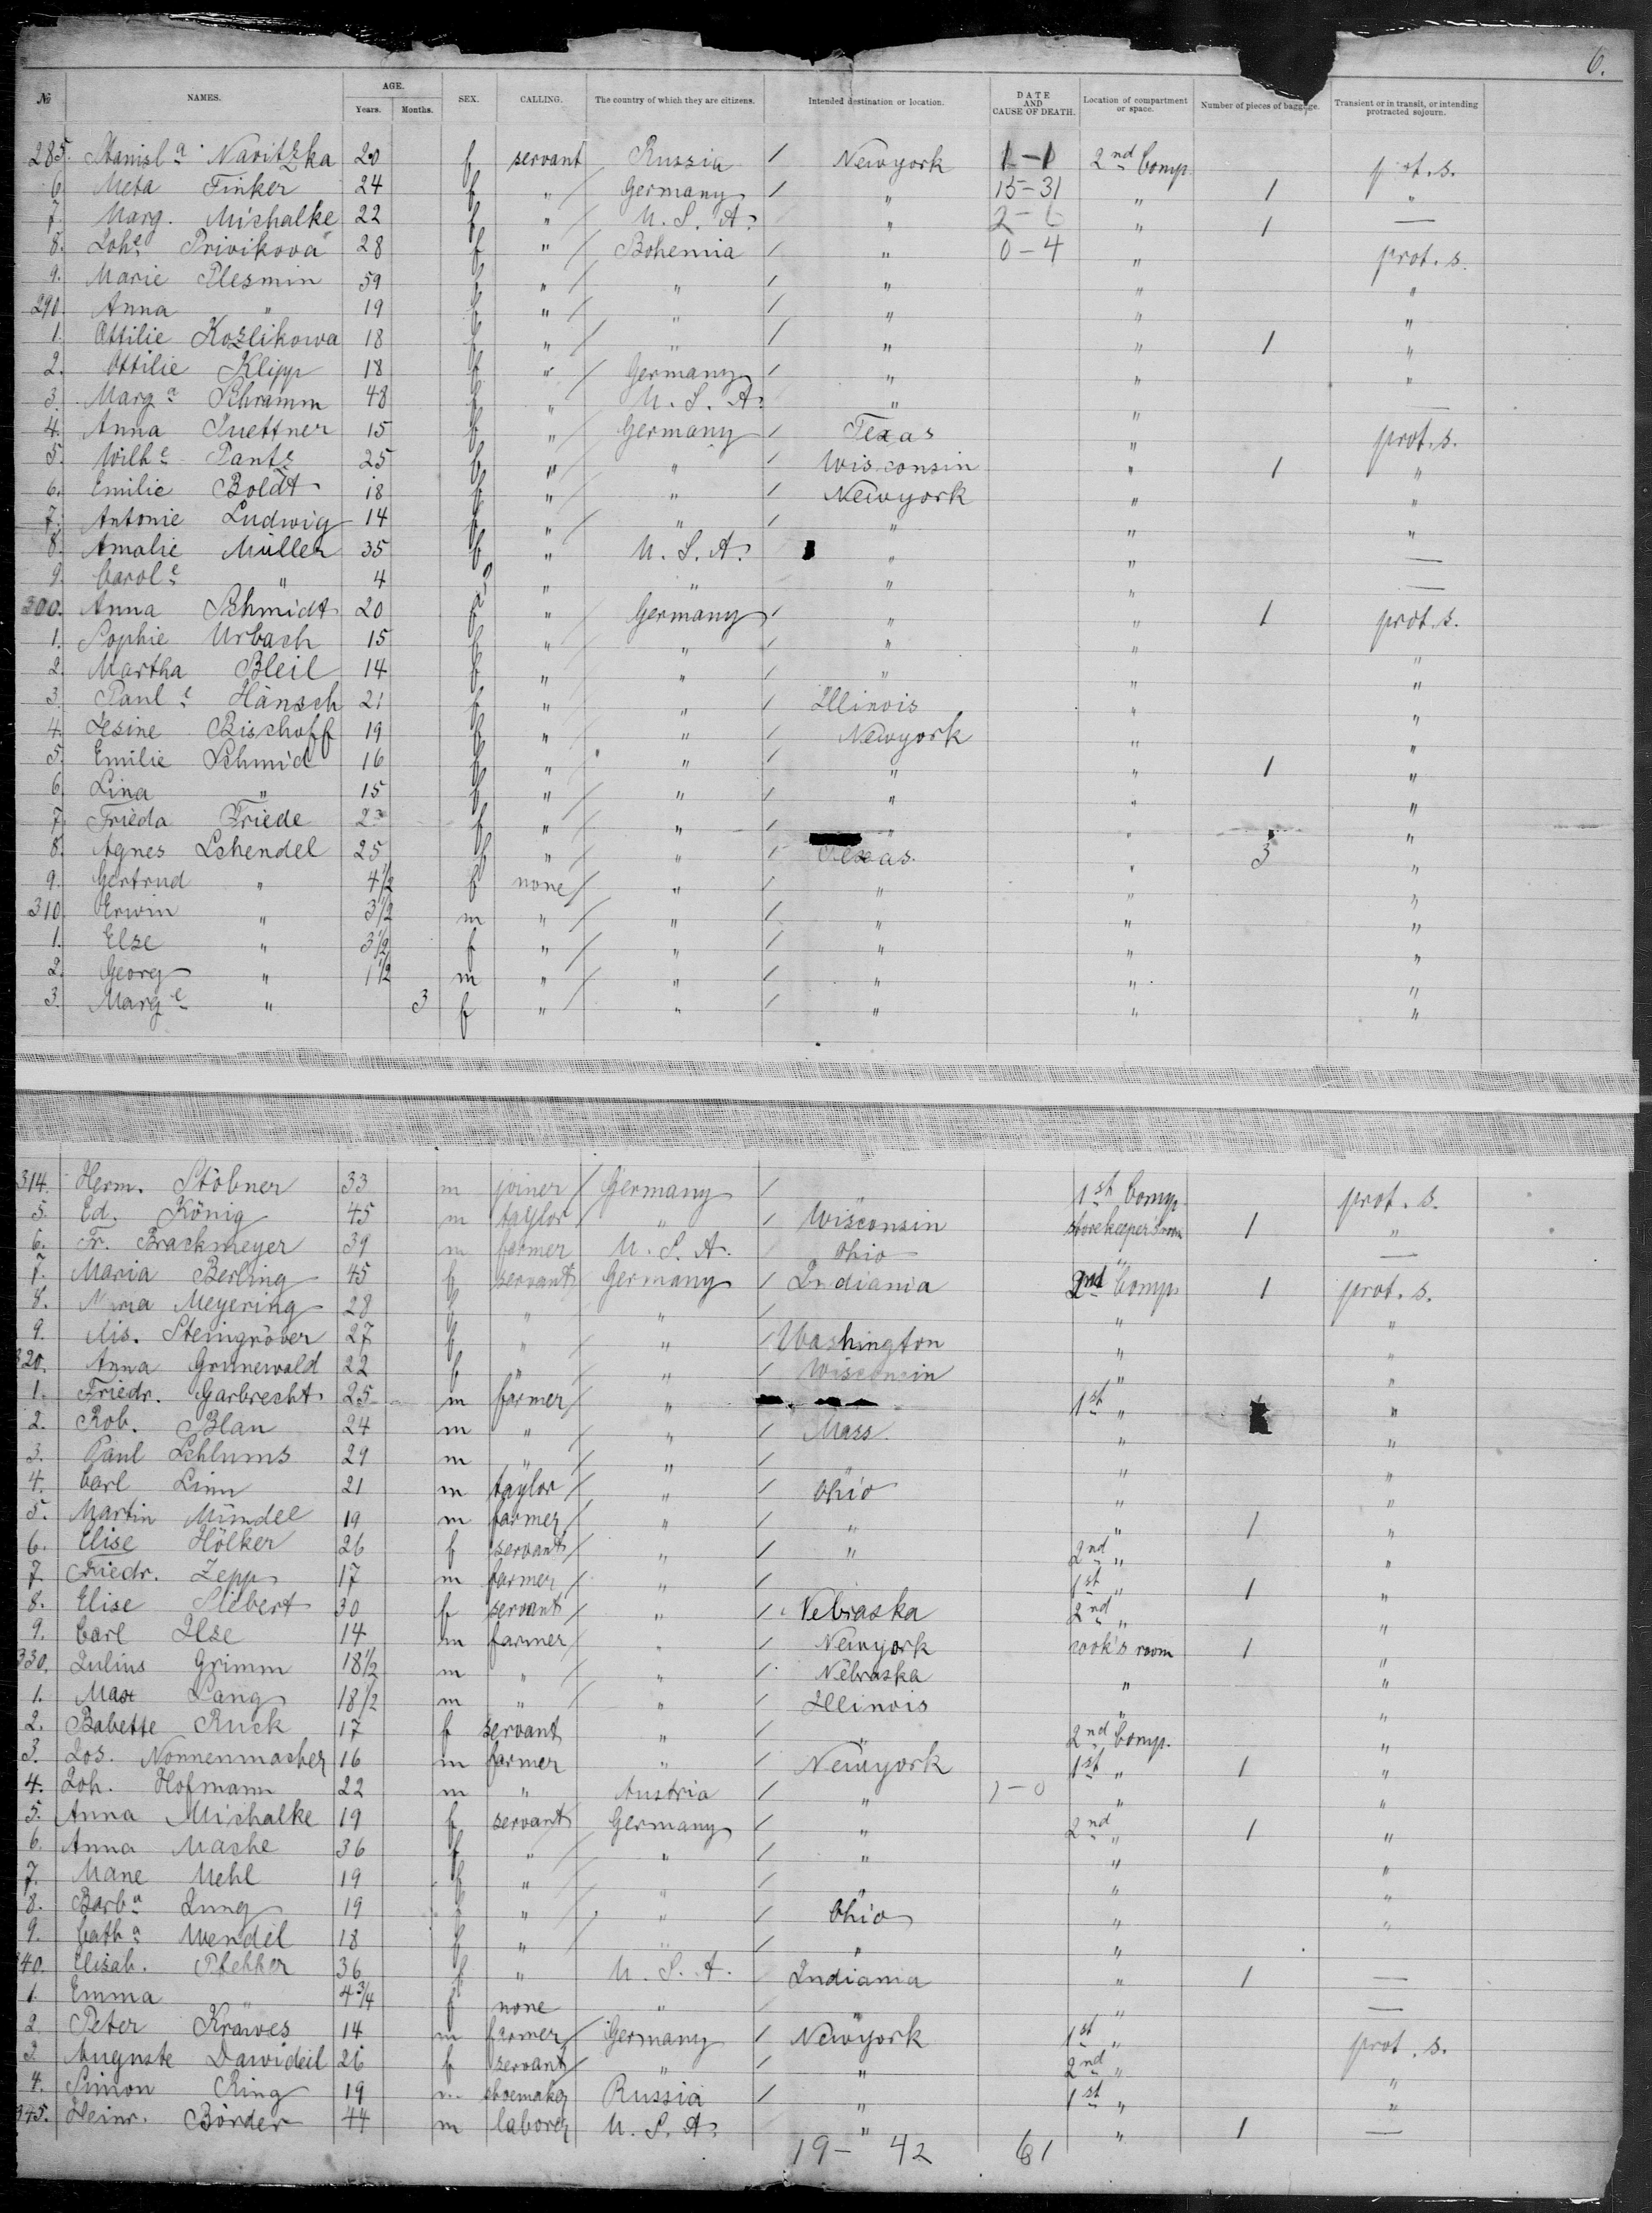 6.
№ NAMES. AGE. Years. Months. SEX. CALLING. The country of which they are citizens. Intended destination or location. DATE AND CAUSE OF DEATH. Location of compartment or space. Number of pieces of baggage. Transient or in transit, or intending protracted sojourn.
285. Stanisl a Navitzka 20 f servant Russia / Newyork 1-1 2nd Comp. prot. s.
6. Meta Finker 24 f " Germany / " 15-31 " 1 "
7. Marg. Mischalke 22 f " U. S. A. " 2- " 1 —
8. Joh e Privikova 28 f " Bohemia / " 0-4 " prot. s.
9. Marie Plesmin 59 f " / " / " " "
290. Anna " 19 f " / " / " " "
1. Ottilie Kozlikowa 18 f " / " / " " 1 "
2. Ottilie Klipp 18 f " / Germany / " " "
3. Marg a Schramm 48 f " U. S. A. " " —
4. Anna Quettner 15 f " / Germany / Texas " prot. s.
5. Wilh e Pantz 25 f " " / Wisconsin " 1 "
6. Emilie Boldt 18 f " / " / Newyork " "
7. Antonie Ludwig 14 f " / " / " " "
8. Amalie Müller 35 f " U. S. A. " " —
9. Carol e " 4 " " " " —
300. Anna Schmidt 20 f " / Germany / " " 1 prot. s.
1. Sophie Urbach 15 f " / " / " " "
2. Martha Bleil 14 f " / " / " " "
3. Paul e Hänsch 21 f " / " / Illinois " "
4. Gesine Bischoff 19 f " / " / Newyork " "
5. Emilie Schmid 16 f " / " / " " 1 "
6. Lina " 15 f " / " / " " "
7. Frieda Friede f " / " / " " "
8. Agnes Schendel 25 f " / " / Texas. " 3 "
9. Gertrud " 4½ f none / " / " " "
310. Erwin " 3½ m " / " / " " "
1. Else " 3½ f " / " / " " "
2. Georg " 1½ m " / " / " " "
3. Marg e " 3 f " / " / " " "
314. Herm. Stöbner 33 m joiner / Germany / " 1st Comp. prot. s.
5. Ed. König 45 m taylor / " / Wisconsin storekeepersroom 1 "
6. Fr. Brackmeyer 39 m farmer U. S. A. Ohio " —
7. Maria Berling 45 f servant Germany / Indiania 2nd Comp. 1 prot. s.
8. Meyering 28 f " " / " "
9. Lis. Steingröver 27 f " " / Washington " "
320. Anna Grunewald 22 f " " / Wisconsin " "
1. Friedr. Garbrecht 25 m farmer / " 1st " 1 "
2. Rob. Blan 24 m " / " / Mass. " "
3. Paul Schlums 29 m " / " / " " "
4. Carl Linn 21 m taylor / " / Ohio " "
5. Martin Mündel 19 m farmer / " / " " 1 "
6. Elise Hölker 26 f servant / " / " 2nd " "
7. Friedr. Zepp 17 m farmer / " / 1st " 1 "
8. Elise Siebert 30 f servant / " / Nebraska 2nd " "
9. Carl Ilse 14 m farmer / " / Newyork cook's room 1 "
330. Julius Grimm 18½ m " / " / Nebraska " "
1. Max Lang 18½ m " / " / Illinois " "
2. Babette Ruck 17 f servant " / " 2nd Comp. "
3. Jos. Nonnenmacher 16 m farmer " / Newyork 1st " 1 "
4. Joh. Hofmann 22 m " Austria / " 1-0 " "
5. Anna Mischalke 19 f servant Germany / " 2nd " 1 "
6. Anna Mashe 36 f " / " / " " "
7. Mane Mehl 19 f " / " / " " "
8. Barb a Jung 19 f " / " / Ohio " "
9. Cath a Wendel 18 f " / " / " "
340. Elisab. 36 f " U. S. A. Indiania " 1 —
1. Emma " 4¾ f none " " " —
2. Peter Krawes 14 m farmer / Germany / Newyork 1st " prot. s.
3. Auguste Dawideil 26 f servant / " / " 2nd " "
4. Simon Ring 19 m shoemaker Russia / " 1st " "
345. Heinr. Börder 44 m laborer U. S. A. " " 1 —
19- 42 61